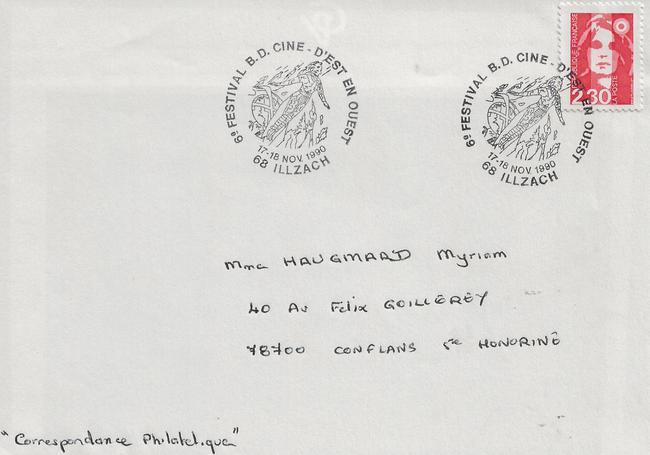 6e FESTIVAL B.D. CINE - D'EST EN OUEST
17-18 NOV. 1990
68 ILLZACH
6e FESTIVAL B.D. CINE - D'EST EN OUEST
17-18 NOV. 1990
68 ILLZACH
REPUBLIQUE FRANÇAISE
2,30
LA POSTE
Mme HAUGMARD Myriam
40 Av Félix GOILLEREY
78700 CONFLANS Ste HONORINE
"Correspondance Philatelique"